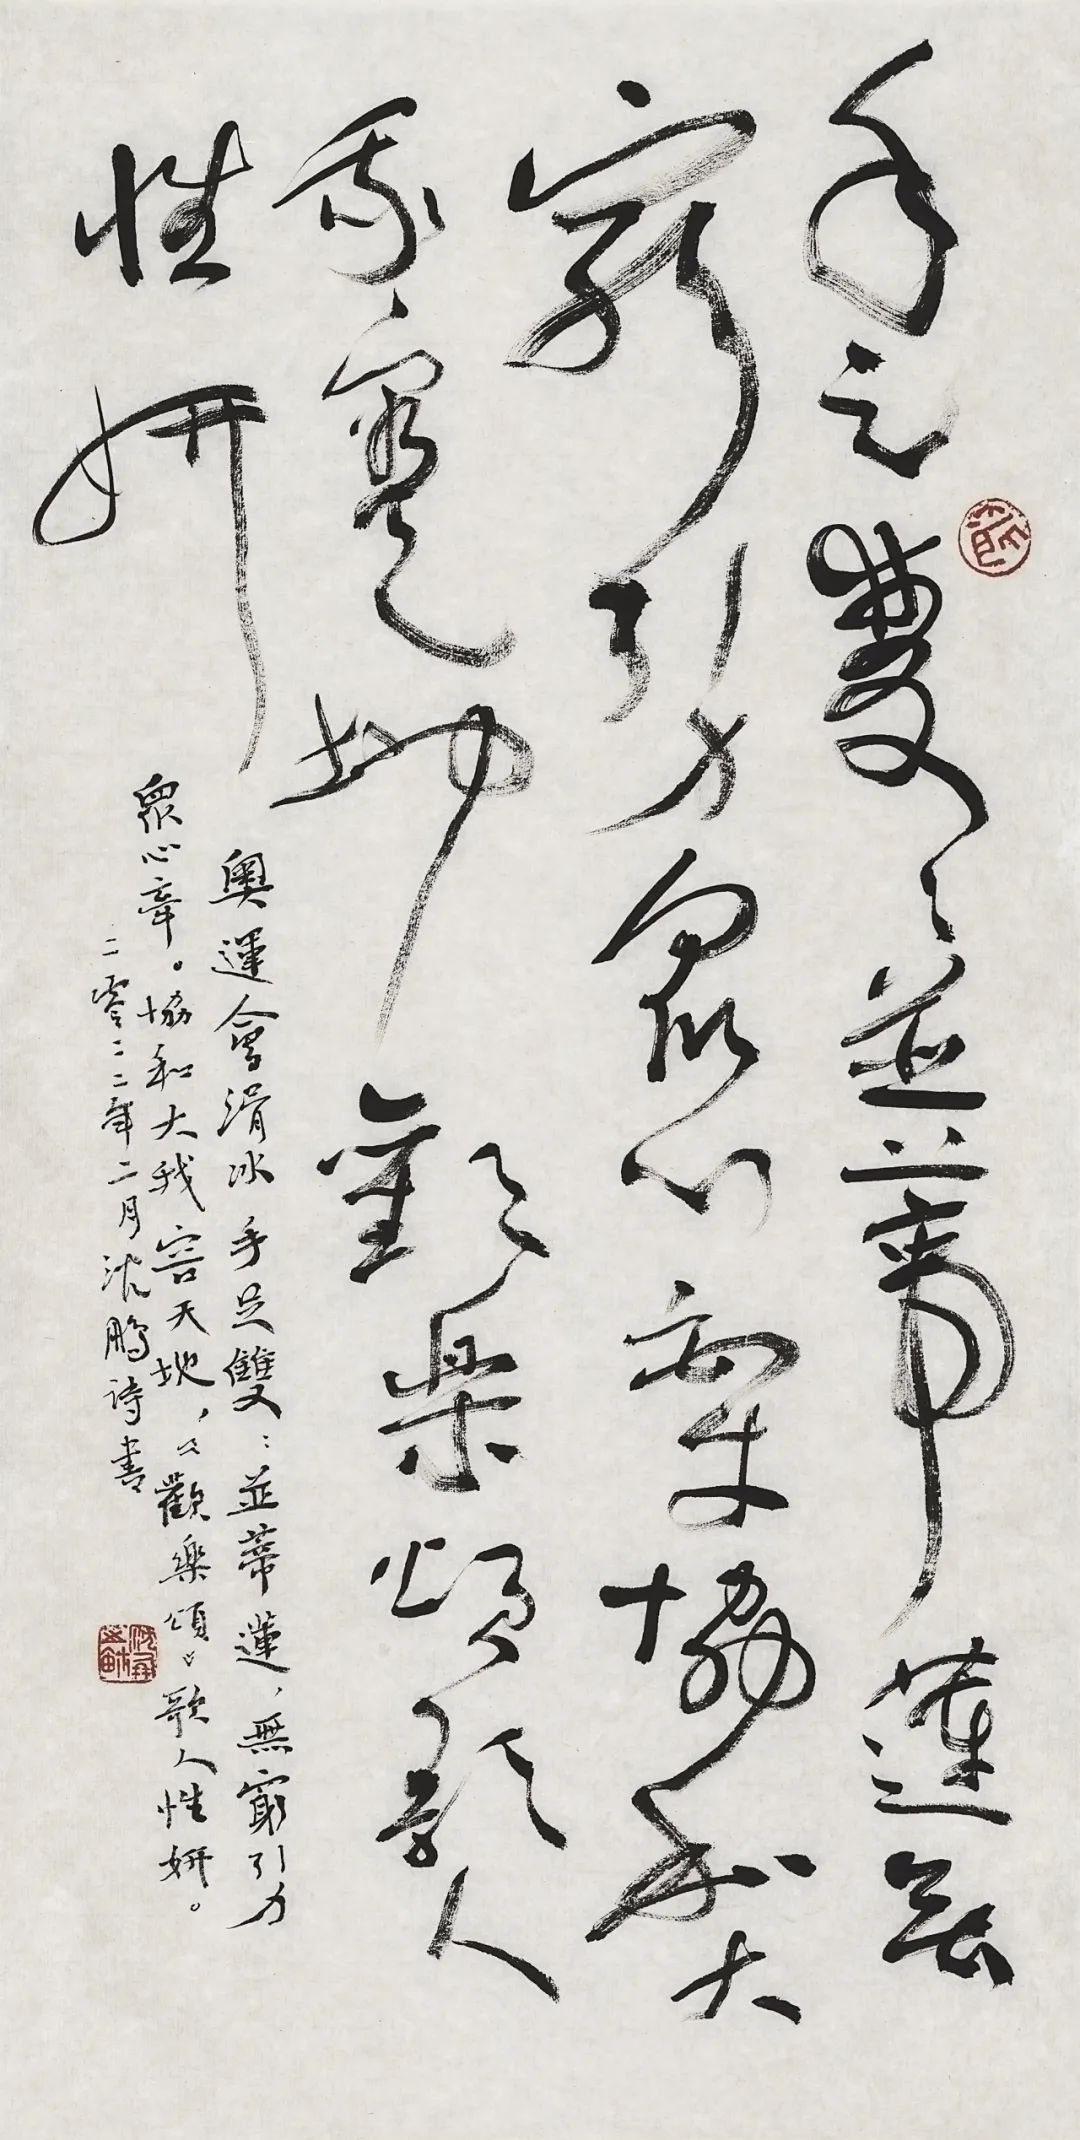 手足雙雙並蒂蓮無
窮引力眾心牽協和大
我容天地歡樂頌歌人
性妍
奧運會滑冰 手足雙雙並蒂蓮，無窮引力
眾心牽。協和大我容天地，《歡樂頌》歌人性妍。
二零二二年二月沈鵬詩書